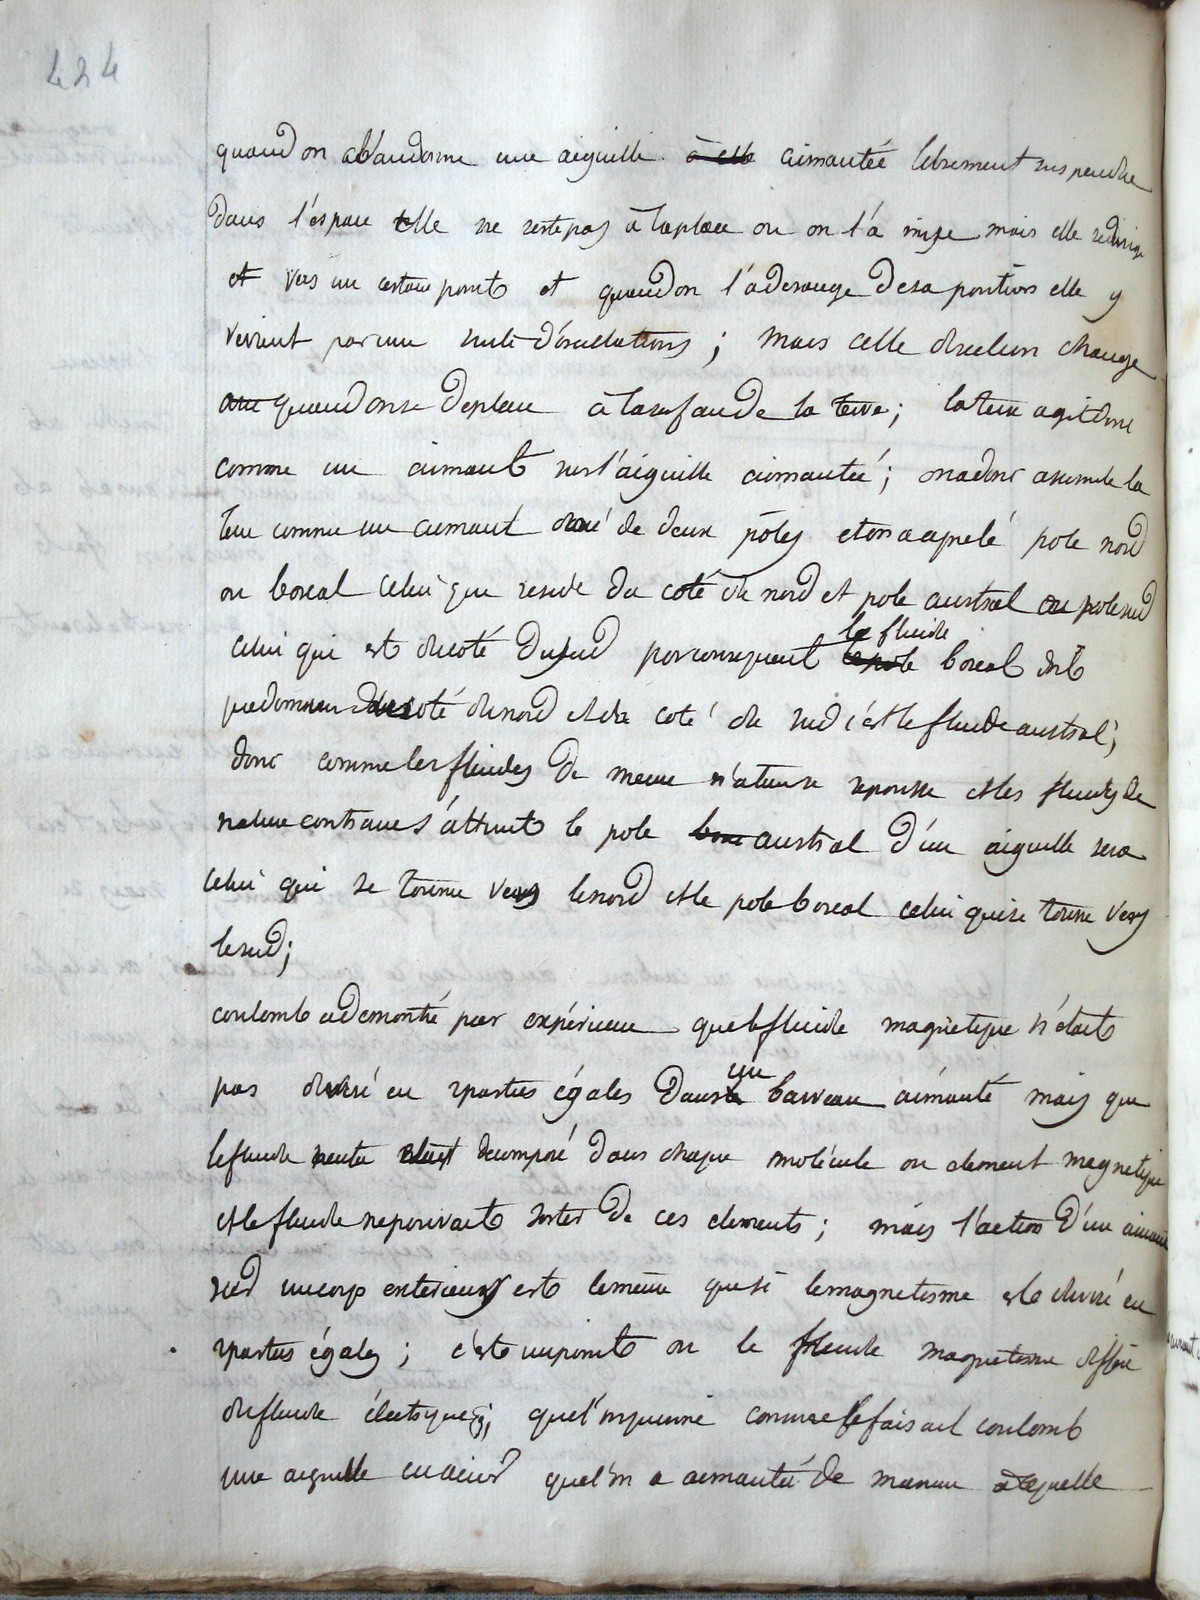 424
quand on abandonne une aiguille à elle aimantée librement suspendue
dans l'espace elle ne reste pas à la place ou on l'a mise mais elle se dirige
et vers un certain point et quand on l'a derange de sa position elle y
revient par une suite d'oscillations ; mais cette direction change
quand on se deplace à la surface de la terre ; la terre agit donc
comme un aimant sur l'aiguille aimantée ; on a donc assimilé la
terre comme un aimant de deux pôles et on a appelé pole nord
ou boreal celui qui reside du coté du nord et pole austral ou pole sud
celui qui est du coté du sud par consequent le fluide le pole boreal doit
predominer du coté du nord et du coté du sud c'est le fluide austral ;
donc comme les fluides de meme nature se repousse et les fluides de
nature contraire s'attirent le pole bore austral d'une aiguille sera
celui qui se tourne vers le nord et le pole boreal celui qui se tourne vers
le sud ;
coulomb a demontré par expérience que le fluide magnetique n'était
pas divisé en 2 parties égales dans un barreau aimanté mais que
le fluide neutre etait decomposé dans chaque molécule ou element magnetique
et le fluide ne pouvait sortir de ces elements ; mais l'action d'un aimant
sur un corp exterieur est le meme que si le magnetisme est divisé en
2 parties égales ; c'est un point ou le fluide magnetisme differe
du fluide électrique ; que l'on comme le faisait coulomb
une aiguille en acier que l'on a aimantée de maniere à laquelle